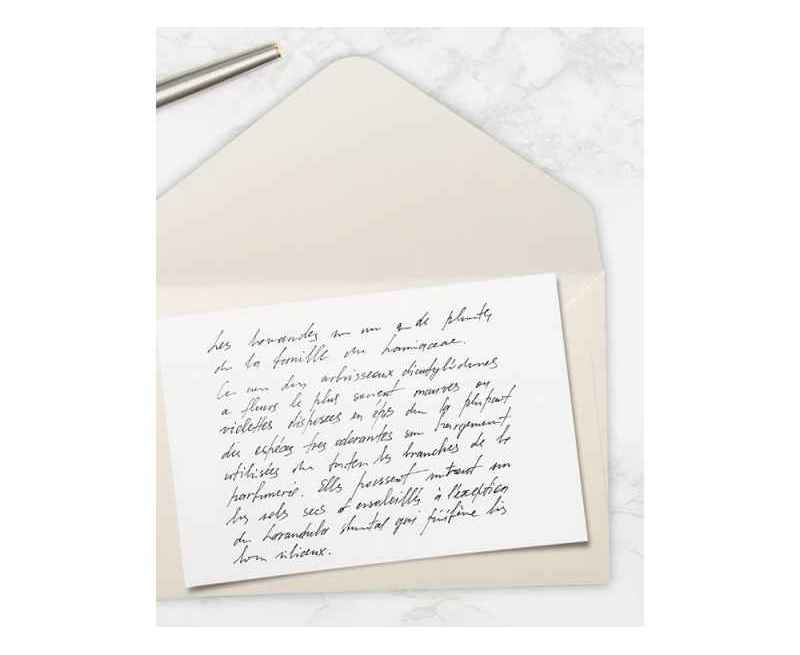 Les lavandes de plantes
de la famille du Lamiaceae.
arbrisseaux dicotylédones
a fleurs le plus souvent mauves ou
violettes disposées en épis dan la plupart
des espèces tres odorantes son largement
utilisées dan toutes les branches de la
parfumerie. Elles poussent surtout sur
les sols secs et ensoleillés à l'exception
du Lavandula qui préfère les